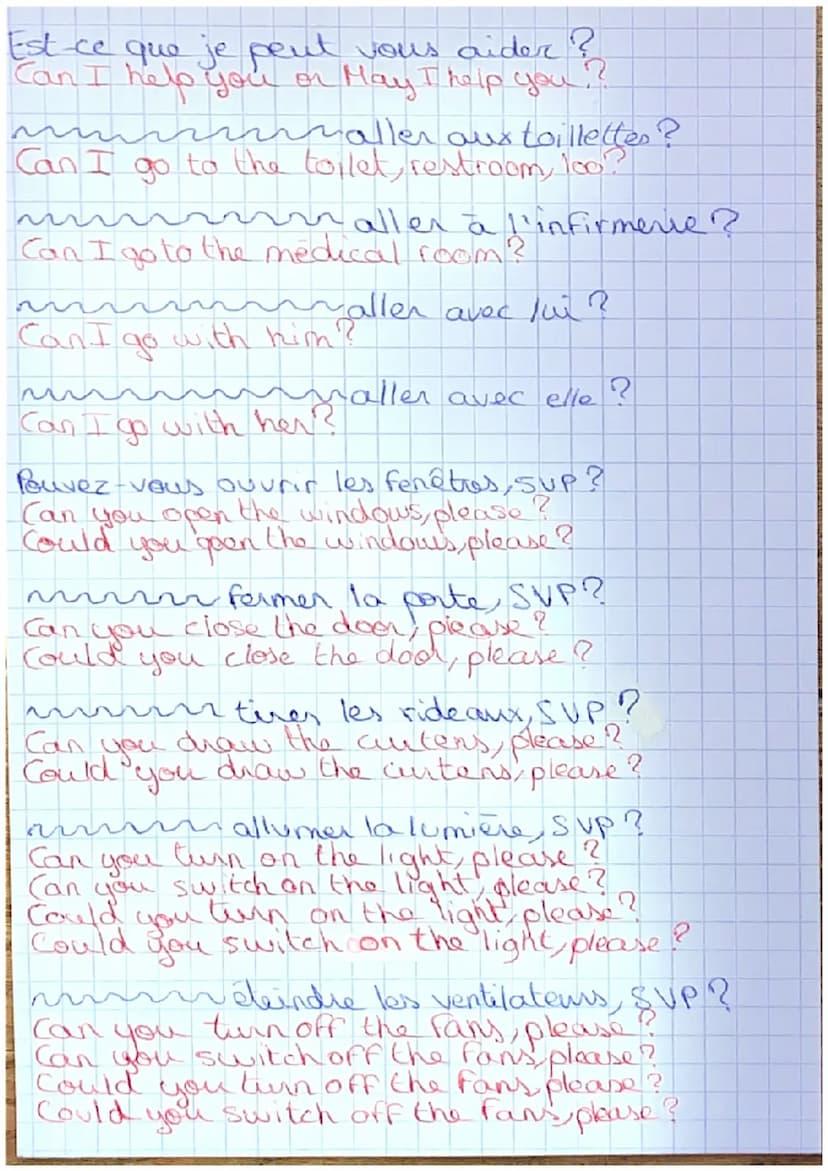 Est-ce que je peut vous aider ?
Can I help you or May I help you ?
aller aux toillettes ?
Can I go to the toilet, restroom, loo?
aller à l'infirmerie ?
Can I go to the medical room ?
aller avec lui ?
Can I go with him ?
aller avec elle ?
Can I go with her ?
Pouvez-vous ouvrir les fenêtres, SVP ?
Can you open the windows, please ?
Could you open the windows, please ?
fermer la porte, SVP ?
Can you close the door, please ?
Could you close the door, please ?
tirer les rideaux, SVP ?
Can you draw the curtens, please ?
Could you draw the curtens, please ?
allumer la lumière, SVP ?
Can you turn on the light, please ?
Can you switch on the light, please ?
Could you turn on the light, please ?
Could you switch on the light, please ?
éteindre les ventilateurs, SVP ?
Can you turn off the fans, please ?
Can you switch off the fans, please ?
Could you turn off the fans, please ?
Could you switch off the fans, please ?